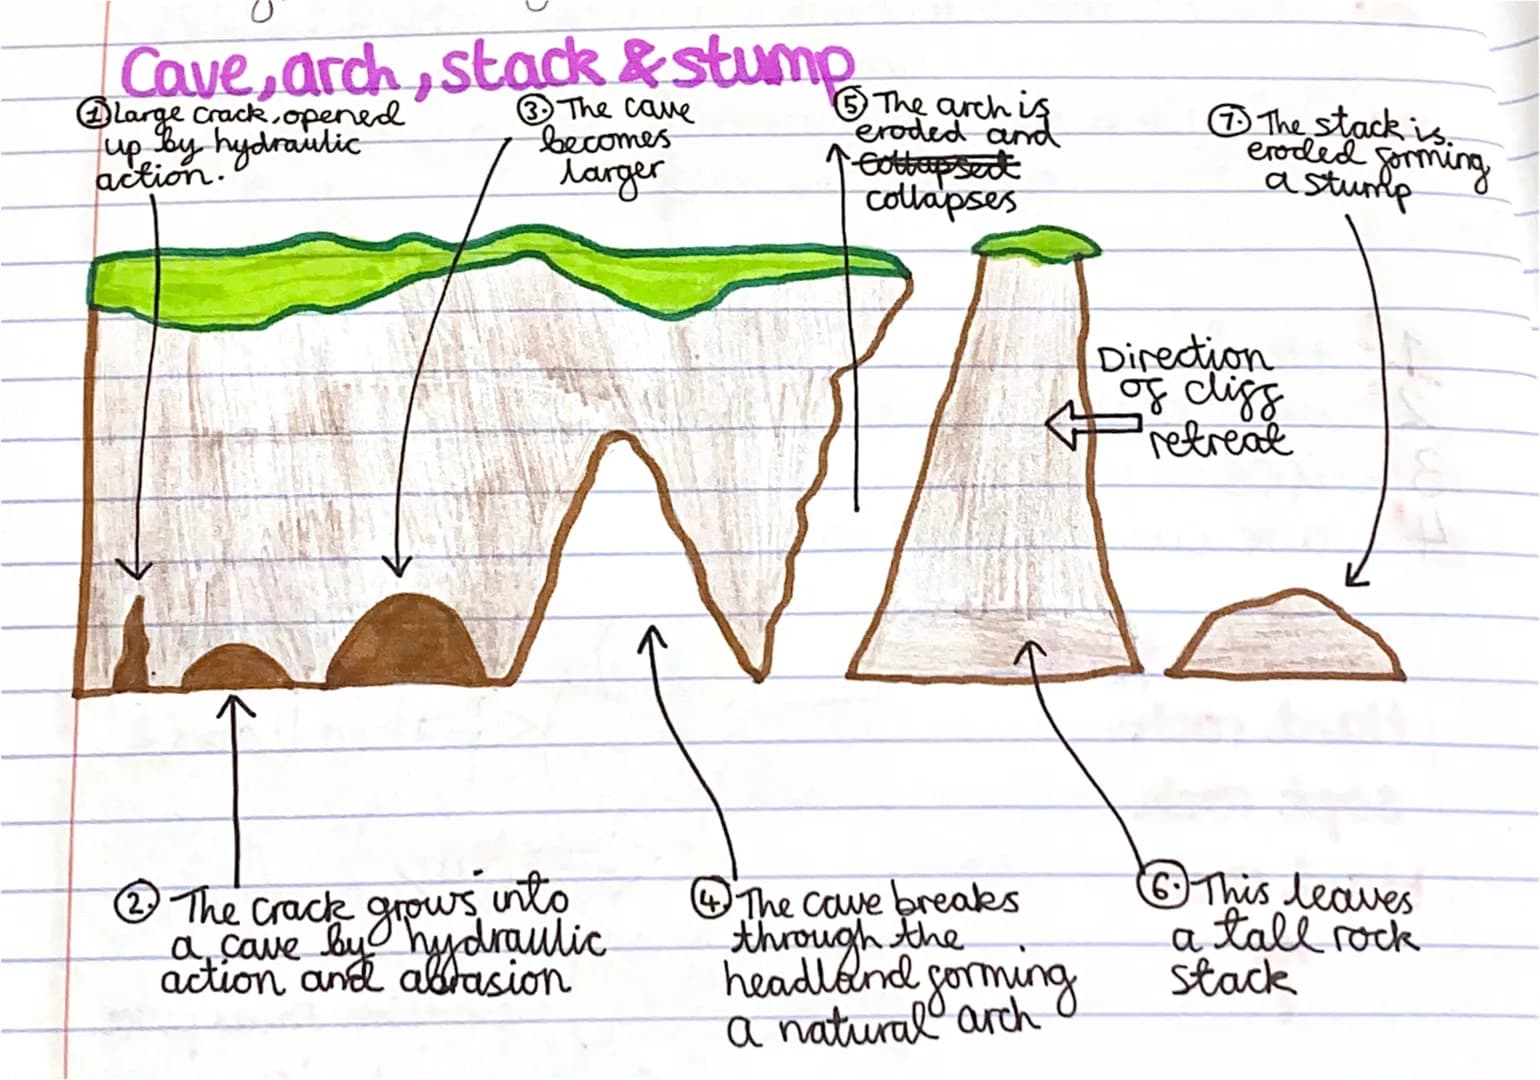 Cave, arch, stack & stump
① Large crack, opened
up by hydraulic
action.
③ The cave
becomes
larger
⑤ The arch is
eroded and
collapsed
collapses
⑦ The stack is
eroded forming
a stump
Direction
of cliff
retreat
② The crack grows into
a cave by hydraulic
action and abrasion
④ The cave breaks
through the
headland forming
a natural arch
⑥ This leaves
a tall rock
stack